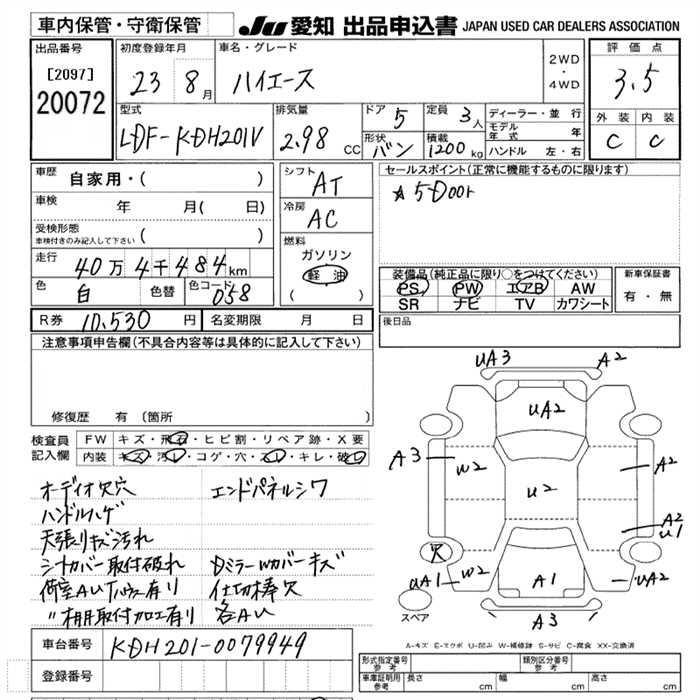 車内保管・守衛保管
JU 愛知 出品申込書 JAPAN USED CAR DEALERS ASSOCIATION
出品番号
[2097]
20072
初度登録年月
23 8月
車名・グレード
ハイエース
2WD
・
4WD
評価点
3.5
外装 内装
C C
型式
LDF-KDH201V
排気量
2.98 CC
ドア 5
定員 3人
形状 バン
積載 1200kg
ディーラー・並行
モデル年式 年
ハンドル 左・右
車歴 自家用・( )
車検 年 月( 日)
受検形態
車検付きのみ記入して下さい ( )
走行 40万4千484km
色 白 色替 色コード 058
シフト AT
冷房 AC
燃料
ガソリン
軽油
( )
セールスポイント(正常に機能するものに限ります)
★5Door
装備品(純正品に限り○をつけてください)
PS PW エアB AW
SR ナビ TV カワシート
新車保証書
有・無
後日品
R券 10,530円 名変期限 月 日
注意事項申告欄(不具合内容等は具体的に記入して下さい)
修復歴 有 (箇所 )
検査員記入欄
FW キズ・飛石・ヒビ割・リペア跡・X要
内装 キズ・汚レ・コゲ・穴・スレ・キレ・破レ
オーディオ欠穴 エンドパネルシワ
ハンドルハゲ
天張りキズ汚れ
シートカバー取付破れ DミラーWカバーキズ
荷室AU 有り 仕切棒欠
〃棚取付加工有り 各AU
車台番号 KDH201-0079949
登録番号
UA3 A2
UA2
A3 W2 U2 A2
A2
U1
欠
UA1 W2 A1 UA2
スペア
A3
A-キズ E-エクボ U-凹み W-補修跡 S-サビ C-腐食 XX-交換済
形式指定番号 参考 類別区分番号 参考
車庫証明用 参考 長さ cm 幅 cm 高さ cm